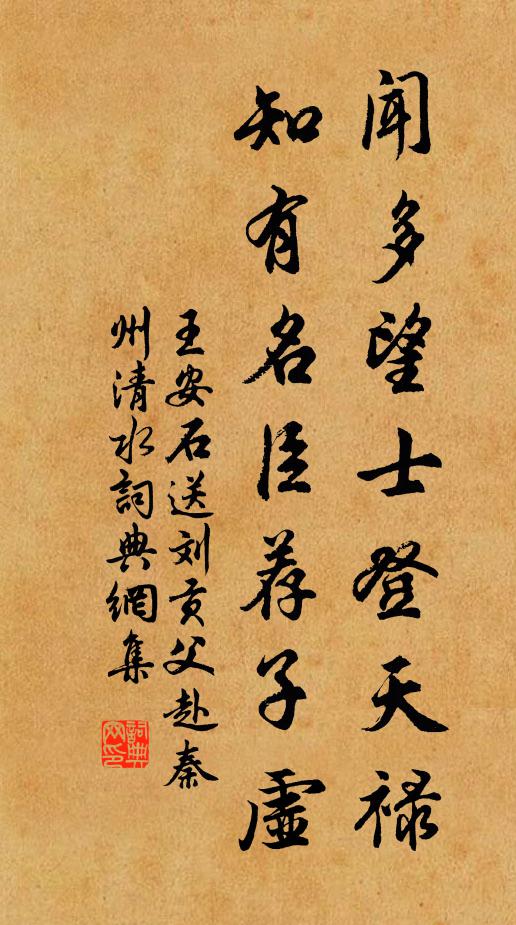 闻多望士登天禄
知有名臣荐子虚
王安石送刘贡父赴秦
州清水詞典網集
詞典网印